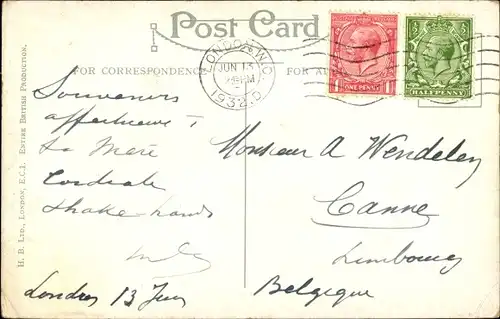 Post Card
FOR CORRESPONDENCE
FOR
LONDON. W.C.
JUN 13
PM
1932
ONE PENNY
HALFPENNY
Souvenirs
affectueux
ta Mère
Cordiale
shake-hands
Londres 13 Juin
Monsieur A Wendelen
Canne
Limbourg
Belgique
H. B. LTD., LONDON, E.C.I. ENTIRE BRITISH PRODUCTION.